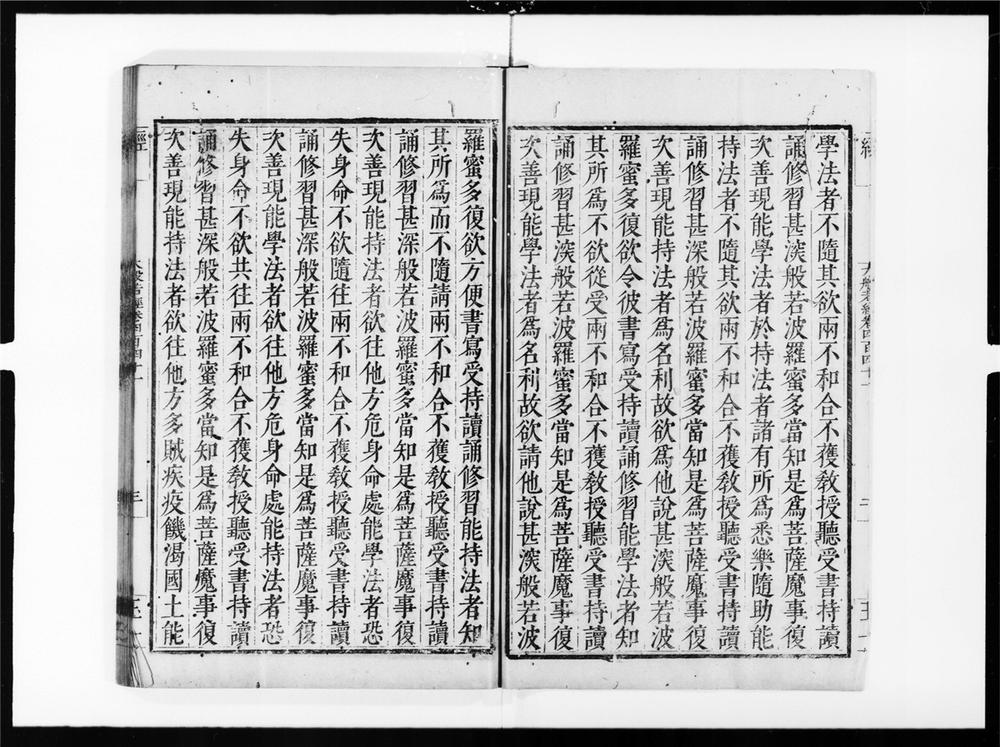 學法者不隨其欲兩不和合不獲教授聽受書持讀
誦修習甚深般若波羅蜜多當知是為菩薩魔事復
次善現能學法者於持法者諸有所為悉樂隨助能
持法者不隨其欲兩不和合不獲教授聽受書持讀
誦修習甚深般若波羅蜜多當知是為菩薩魔事復
次善現能持法者為名利故欲為他說甚深般若波
羅蜜多復欲令彼書寫受持讀誦修習能學法者知
其所為不欲從受兩不和合不獲教授聽受書持讀
誦修習甚深般若波羅蜜多當知是為菩薩魔事復
次善現能學法者為名利故欲請他說甚深般若波
大般若經卷四百四十一
二
羅蜜多復欲方便書寫受持讀誦修習能持法者知
其所為而不隨請兩不和合不獲教授聽受書持讀
誦修習甚深般若波羅蜜多當知是為菩薩魔事復
次善現能持法者欲往他方危身命處能學法者恐
失身命不欲隨往兩不和合不獲教授聽受書持讀
誦修習甚深般若波羅蜜多當知是為菩薩魔事復
次善現能學法者欲往他方危身命處能持法者恐
失身命不欲共往兩不和合不獲教授聽受書持讀
誦修習甚深般若波羅蜜多當知是為菩薩魔事復
次善現能持法者欲往他方多賊疾疫饑渴國土能
經
大般若經卷四百四十一
三